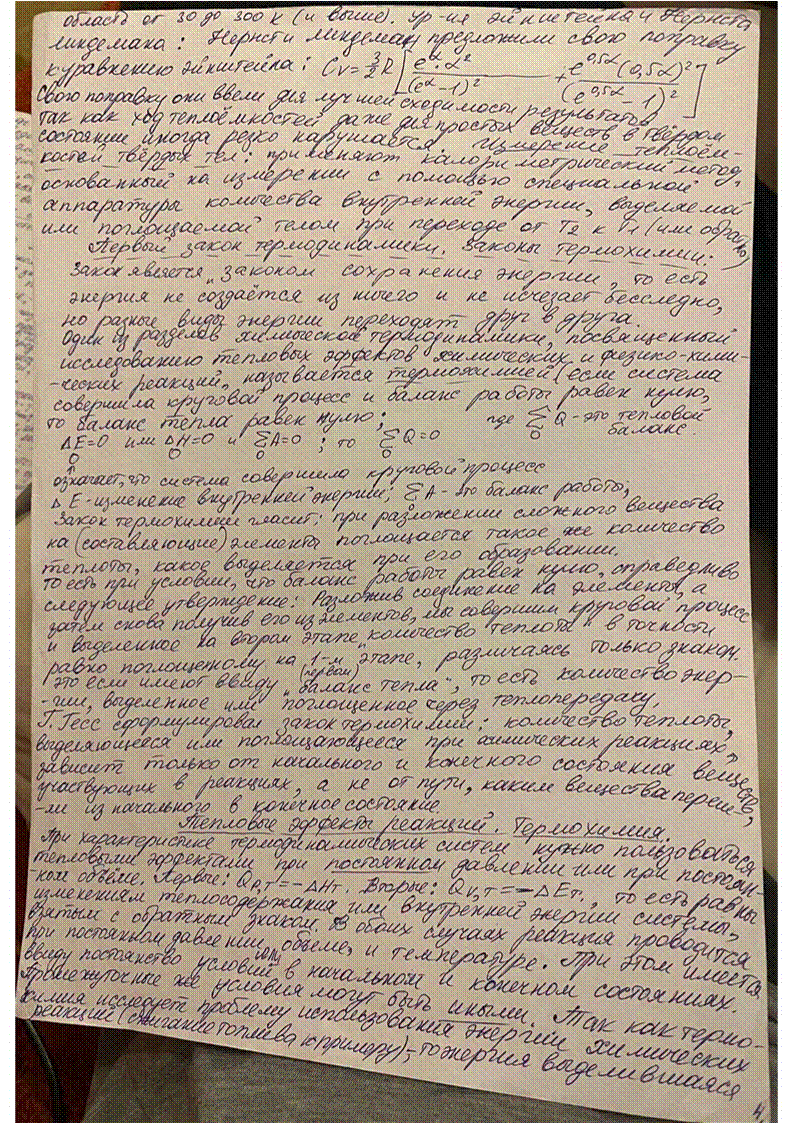 область от 30 до 300 К (и выше). Ур-ия Эйнштейна и Нернста
Линдемана: Нернст и Линдеман предложили свою поправку
к уравнению Эйнштейна: Cv = 3/2 R [ e^α · α² / (e^α − 1)² + e^0,5α (0,5α)² / (e^0,5α − 1)² ]
Свою поправку они ввели для лучшей сходимости результатов
так как ход теплоёмкостей даже для простых веществ в твёрдом
состоянии иногда резко нарушается. Измерение теплоём-
костей твёрдых тел: применяют калориметрический метод,
основанный на измерении с помощью специальной
аппаратуры количества внутренней энергии, выделяемой
или поглощаемой телом при переходе от T2 к T1 (или обратно)
Первый закон термодинамики. Законы термохимии:
Закон является "законом сохранения энергии", то есть
энергия не создаётся из ничего и не исчезает бесследно,
но разные виды энергии переходят друг в друга.
Один из разделов химической термодинамики, посвященный
исследованию тепловых эффектов химических и физико-хими-
-ческих реакций, называется термохимией (если система
совершила круговой процесс и баланс работы равен нулю,
то баланс тепла равен нулю; где Σ Q - это тепловой
0 баланс
ΔE=0 или ΔH=0 и ΣA=0 ; то ΣQ=0
0 0 0 0
означает, что система совершила круговой процесс
ΔE - изменение внутренней энергии; ΣA - это баланс работы;
Закон термохимии гласит: при разложении сложного вещества
на (составляющие) элементы поглощается такое же количество
теплоты, какое выделяется при его образовании.
То есть при условии, что баланс работы равен нулю, справедливо
следующее утверждение: Разложив соединение на элементы, а
затем снова получив его из элементов, мы совершим круговой процесс
и выделенное на втором этапе "количество теплоты" в точности
равно поглощенному на 1-м (первом) этапе, различаясь только знаком.
Это если имеют ввиду "баланс тепла", то есть количество энер-
-гии, выделенное или поглощенное через теплопередачу.
Г. Гесс сформулировал закон термохимии: количество теплоты,
выделяющееся или поглощающееся при химических реакциях,
зависит только от начального и конечного состояния веществ,
участвующих в реакциях, а не от пути, каким вещества переш-
-ли из начального в конечное состояние.
Тепловые эффекты реакций. Термохимия.
При характеристике термодинамических систем нужно пользоваться
тепловыми эффектами при постоянном давлении или при постоян-
-ном объёме. Первые: Qp,т = −ΔHт. Вторые: Qv,т = −ΔEт, то есть равны
изменениям теплосодержания или внутренней энергии системы,
взятым с обратным знаком. В обоих случаях реакция проводится
при постоянном давлении, объеме, и температуре. При этом имеется
ввиду постоянство условий в начальном и конечном состояниях.
Промежуточные же условия могут быть иными. Так как термо-
химия исследует проблему использования энергии химических
реакций (сжигание топлива к примеру) - то энергия выделившаяся
4.